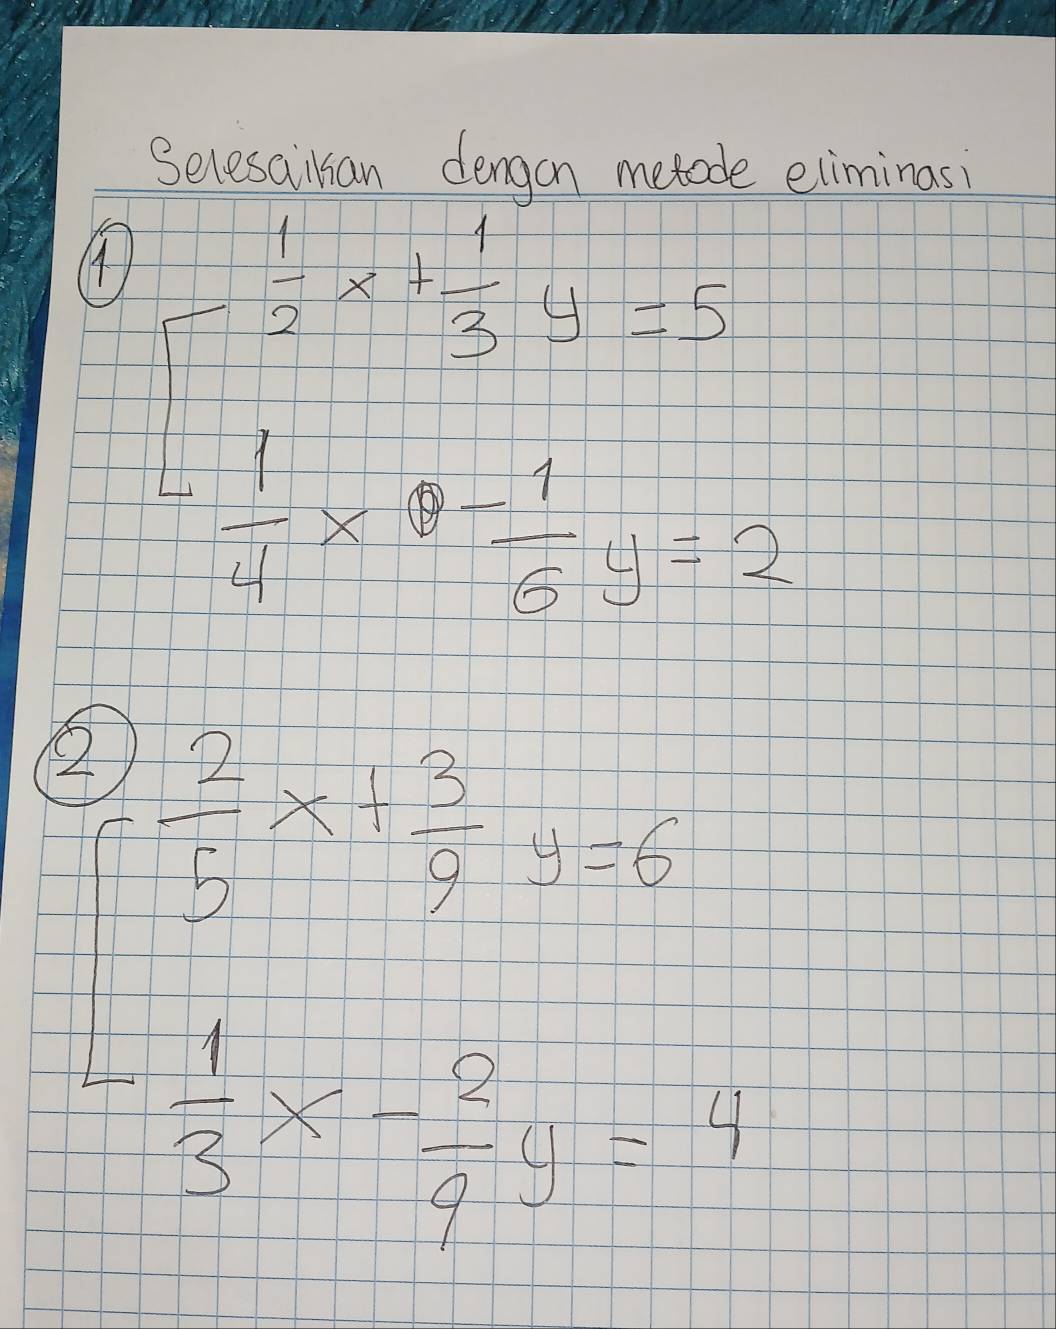 Selesaikan dengan metode eliminasi
① 1/2 x + 1/3 y = 5
1/4 x - 1/6 y = 2
② 2/5 x + 3/9 y = 6
1/3 x - 2/9 y = 4